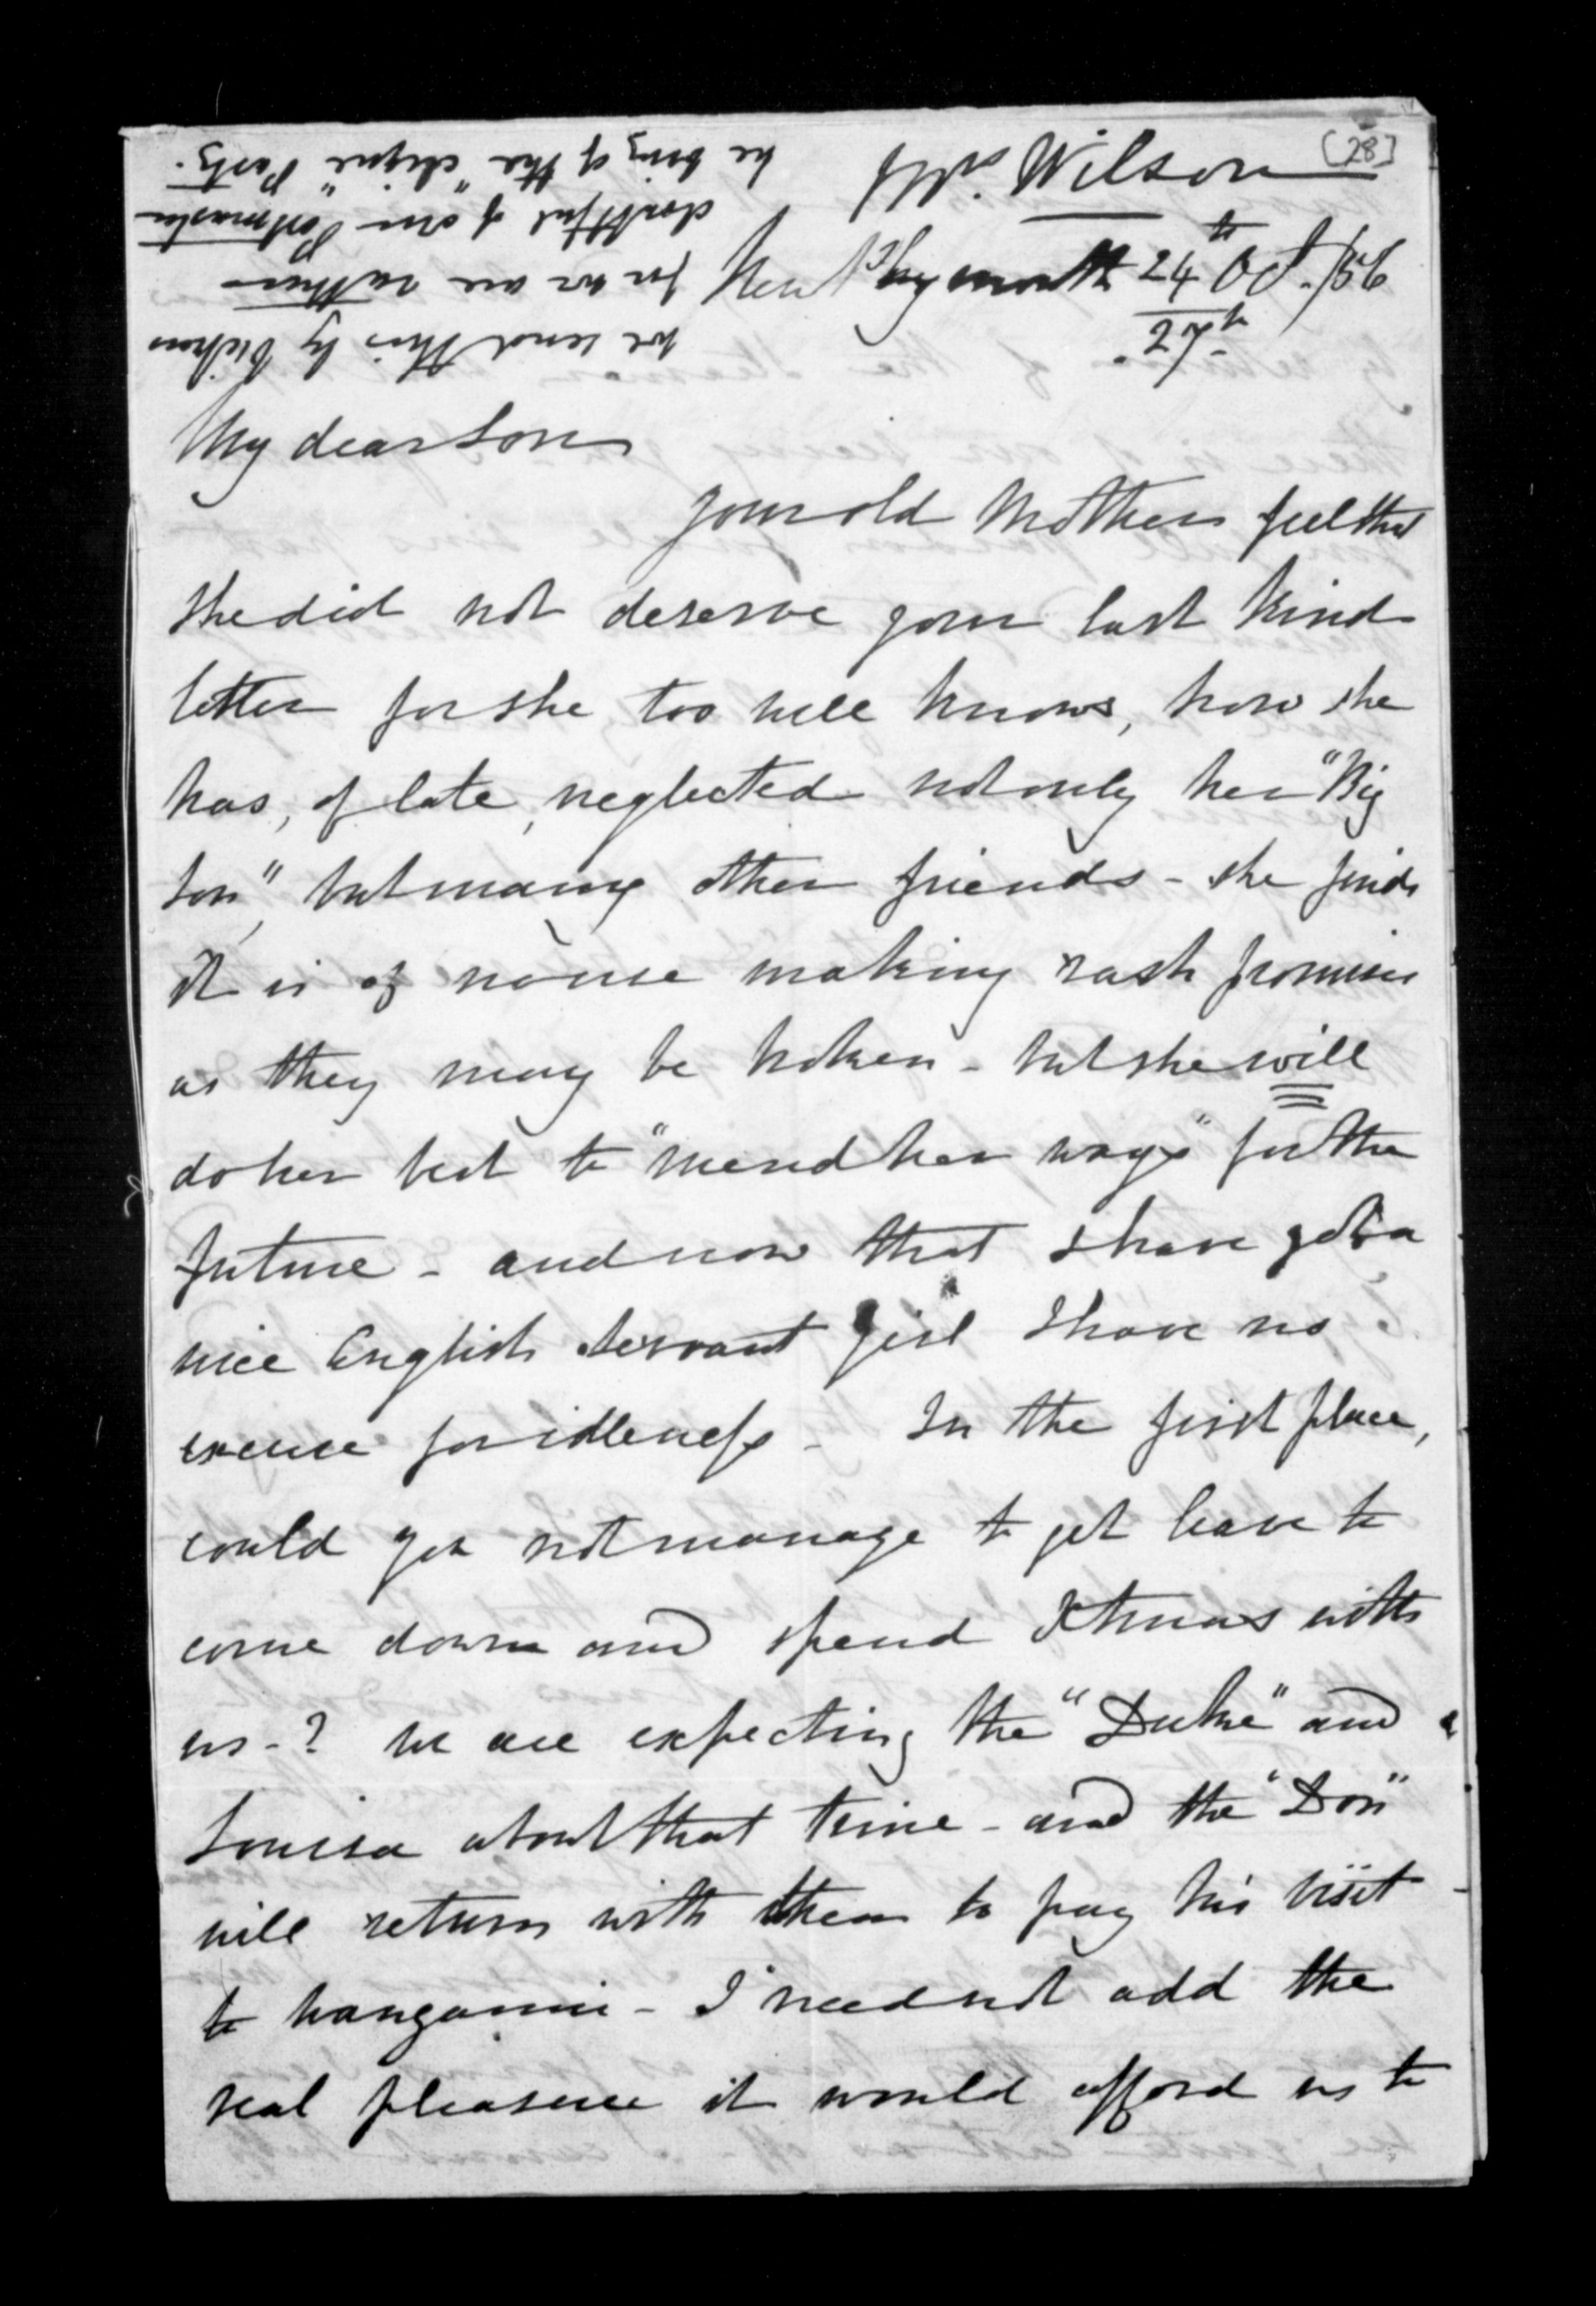 [28]
Mrs. Wilson
New Plymouth 24th Oct. /56
27th
My dear Son
your old Mother feels that
she did not deserve your last kind
letter for she too well knows, how she
has, of late, neglected not only her "Big
Son", but many other friends - she finds
it is of no use making rash promises
as they may be broken - but she will
do her best to "mend her ways" for the
future - and now that I have got a
nice English servant girl I have no
excuse for idleness - In the first place,
could you not manage to get leave to
come down and spend Xtmas with
us - ? we are expecting the "Duke" and
Louisa about that time - and the "Don"
will return with them to pay his visit
to Wanganui - I need not add the
real pleasure it would afford us to
we send this by
for we are rather
doubtful of our Postmaster
he being of the "clique" Party.